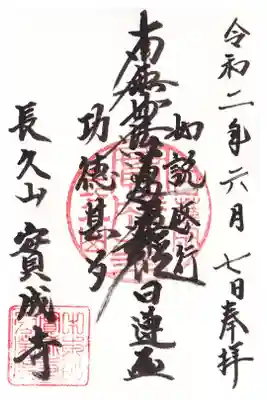 令和二年六月七日奉拝
如説修行
南無妙法蓮華経日蓮
功徳甚多
長久山實成寺